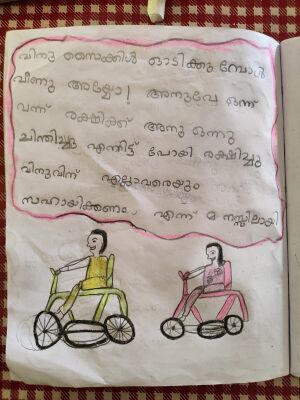 വിനു സൈക്കിൾ ഓടിക്കു മ്പോൾ
വീണു അയ്യോ! അനുവേ ഒന്ന്
വന്ന് രക്ഷിക്ക് അനു ഒന്നു
ചിന്തിച്ചു എന്നിട്ട് പോയി രക്ഷിച്ചു
വിനുവിന് എല്ലാവരെയും
സഹായിക്കണം.. എന്ന് മ നസ്സിലായി